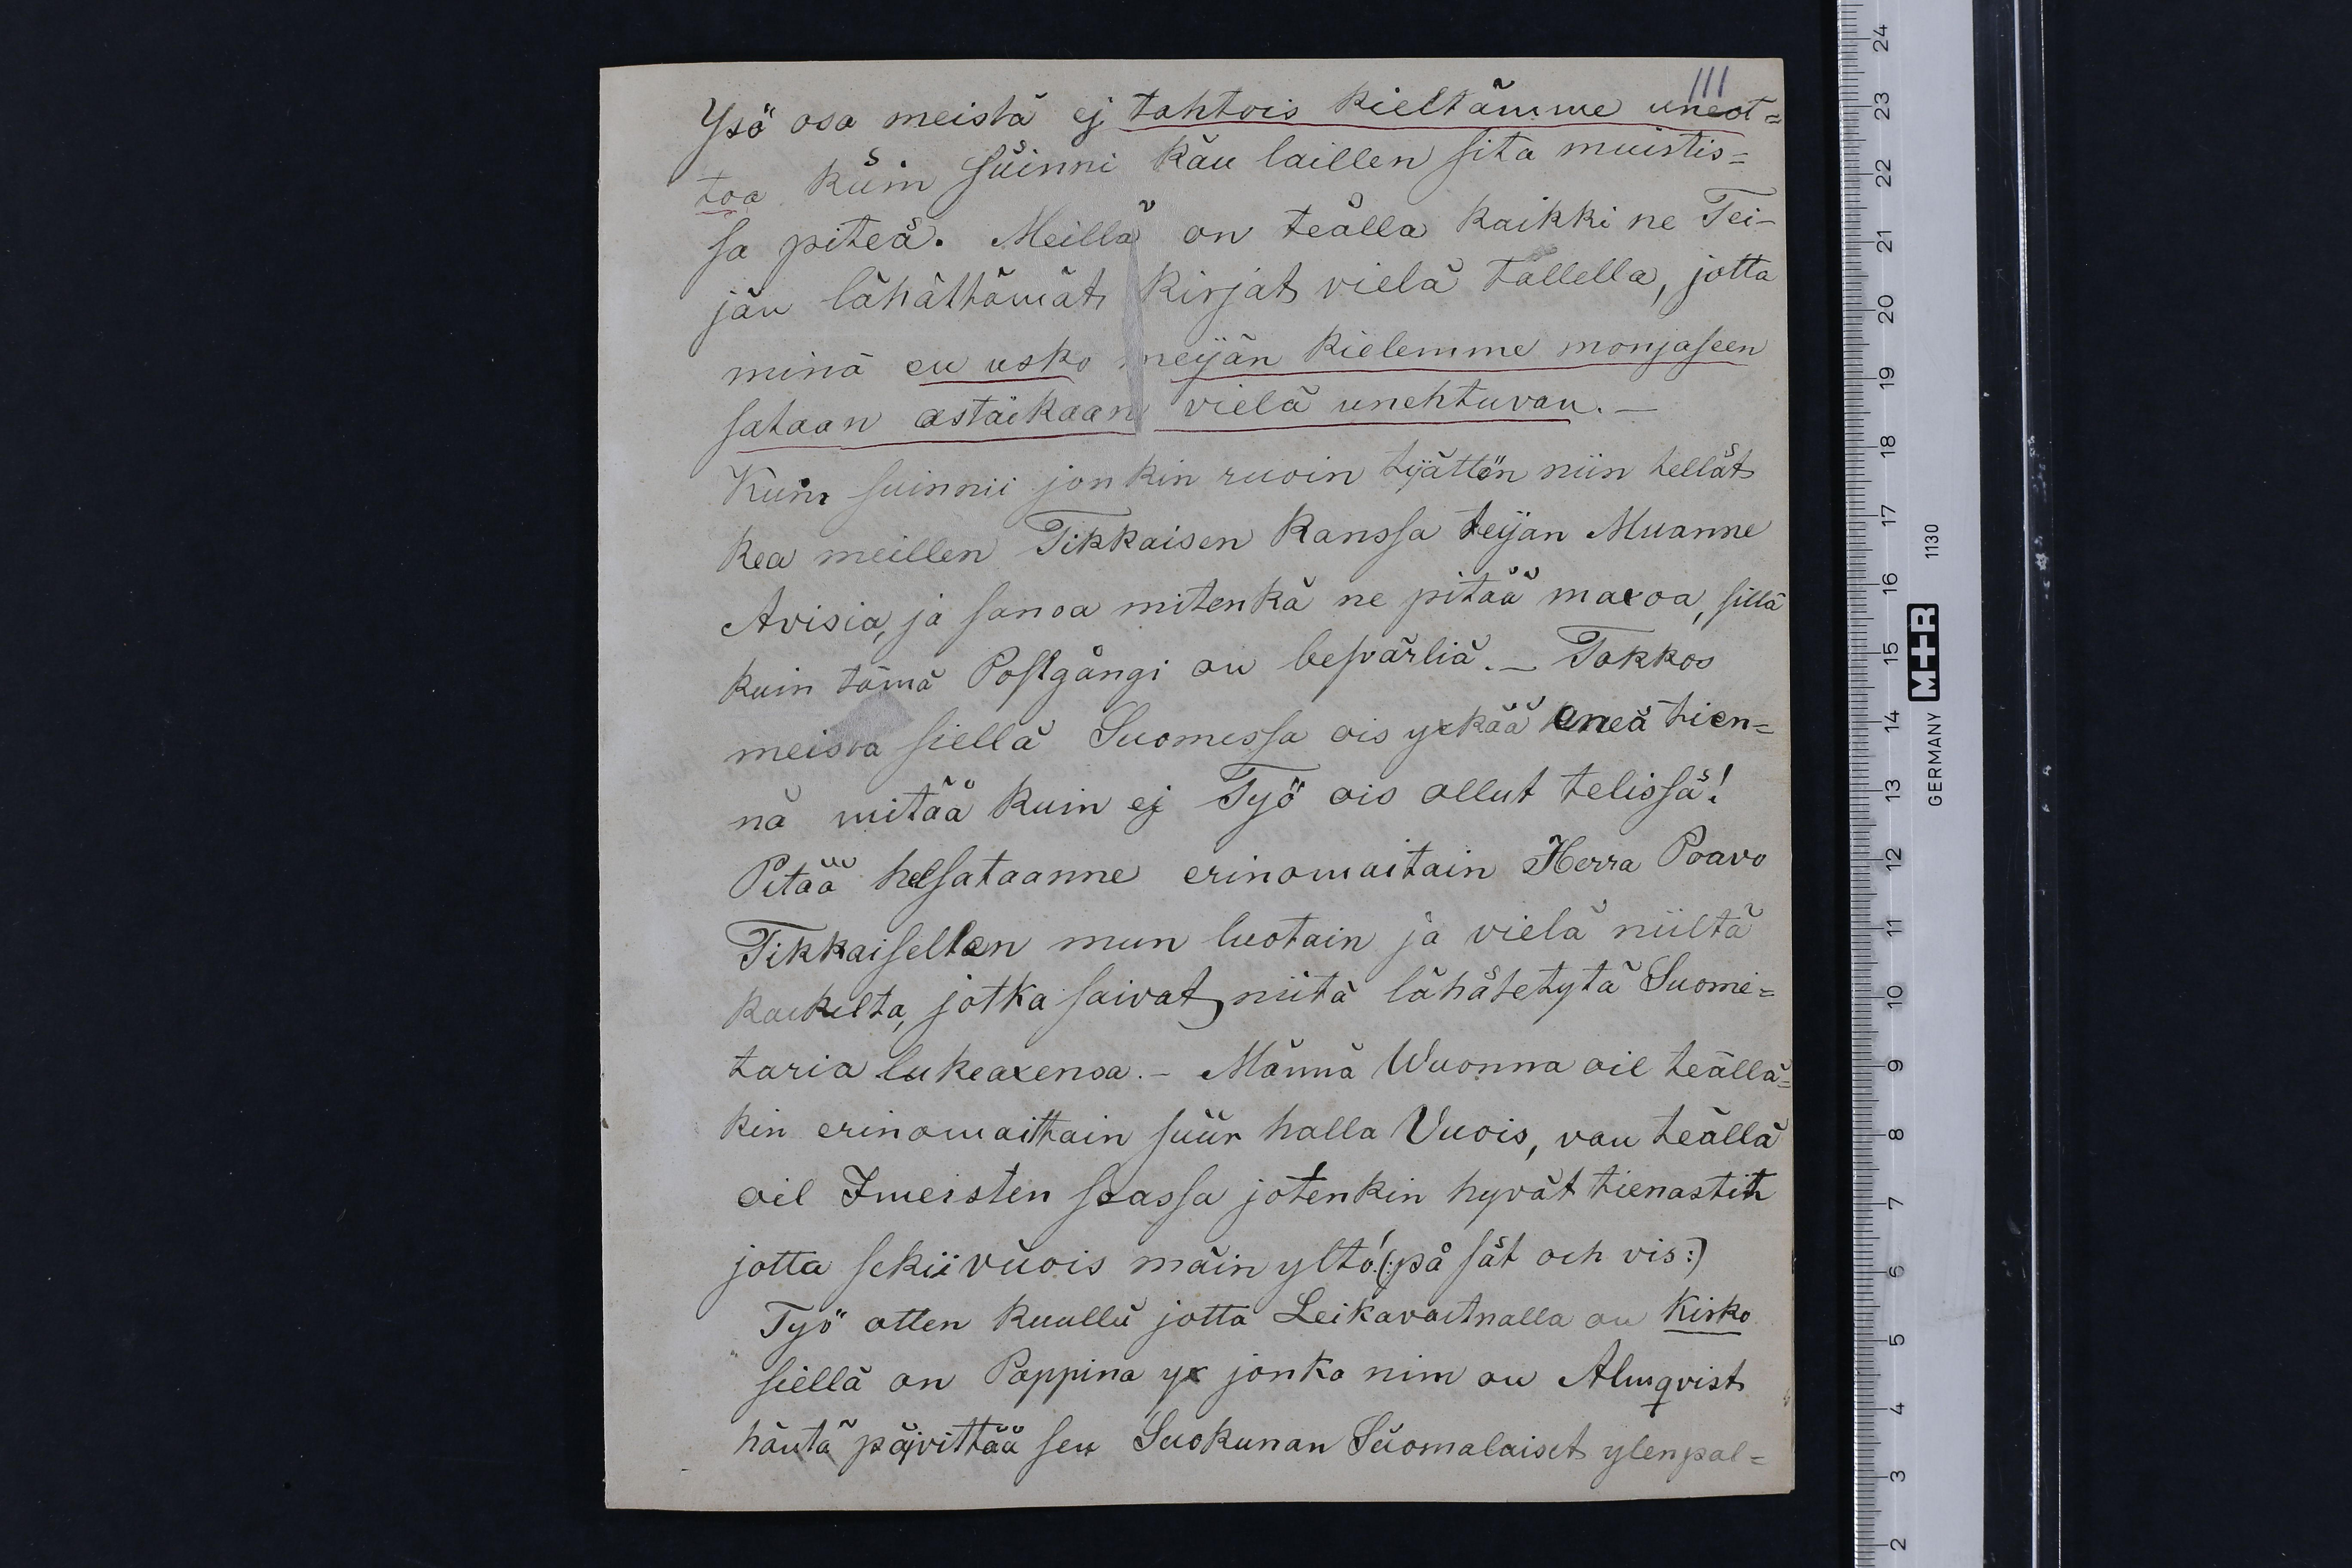 111
Ysö osa meistä ej tahtois kieltämme uneot=
toa kuin süinni kau laillen sita muistis=
sa piteä. Meillä on teälla kaikki ne Tei-
jän lähättämät kirjat vielä tallella, jotta
minä eu usko meijän kielemme monjaseen
sataan astäikaan vielä unehtuvan. —
Kuin suinnii jonkin ruoin tyättön niin tellät
kea meillen Tikkaisen kanssa teijan Muanne
Avisia, ja sanoa mitenkä ne pitää maxoa, sillä
kuin tämä Postgångi on besvärliä. — Takkos
meistä siellä Suomessa ois yxkää eneä tien=
nä mitää kuin ej Työ ois ollut telissä!
Pitää helsataanne erinomaitain Herra Poavo
Tikkaisellen mun luotain ja vielä niiltä
kaikilta, jotka saivat niitä lähätetytä Suome=
taria lukeaxensa. — Männä Wuonna oil teällä=
kin erinomaittain suur halla Vuois, vau teällä
oil Imeisten seassa jotenkin hyvät tienastit
jotta sekii vuois mäin yltö! (: på sät och vis:)
Työ otten kuullu jotta Leikavaitnalla on Kirko
siellä on Pappina yx jonka nim on Almqvist
häntä päivittää sen Suokunan Suomalaiset ylenpal=
24
23
22
21
20
19
18
17
16
15
14
13
12
11
10
9
8
7
6
5
4
3
2
GERMANY M+R 1130